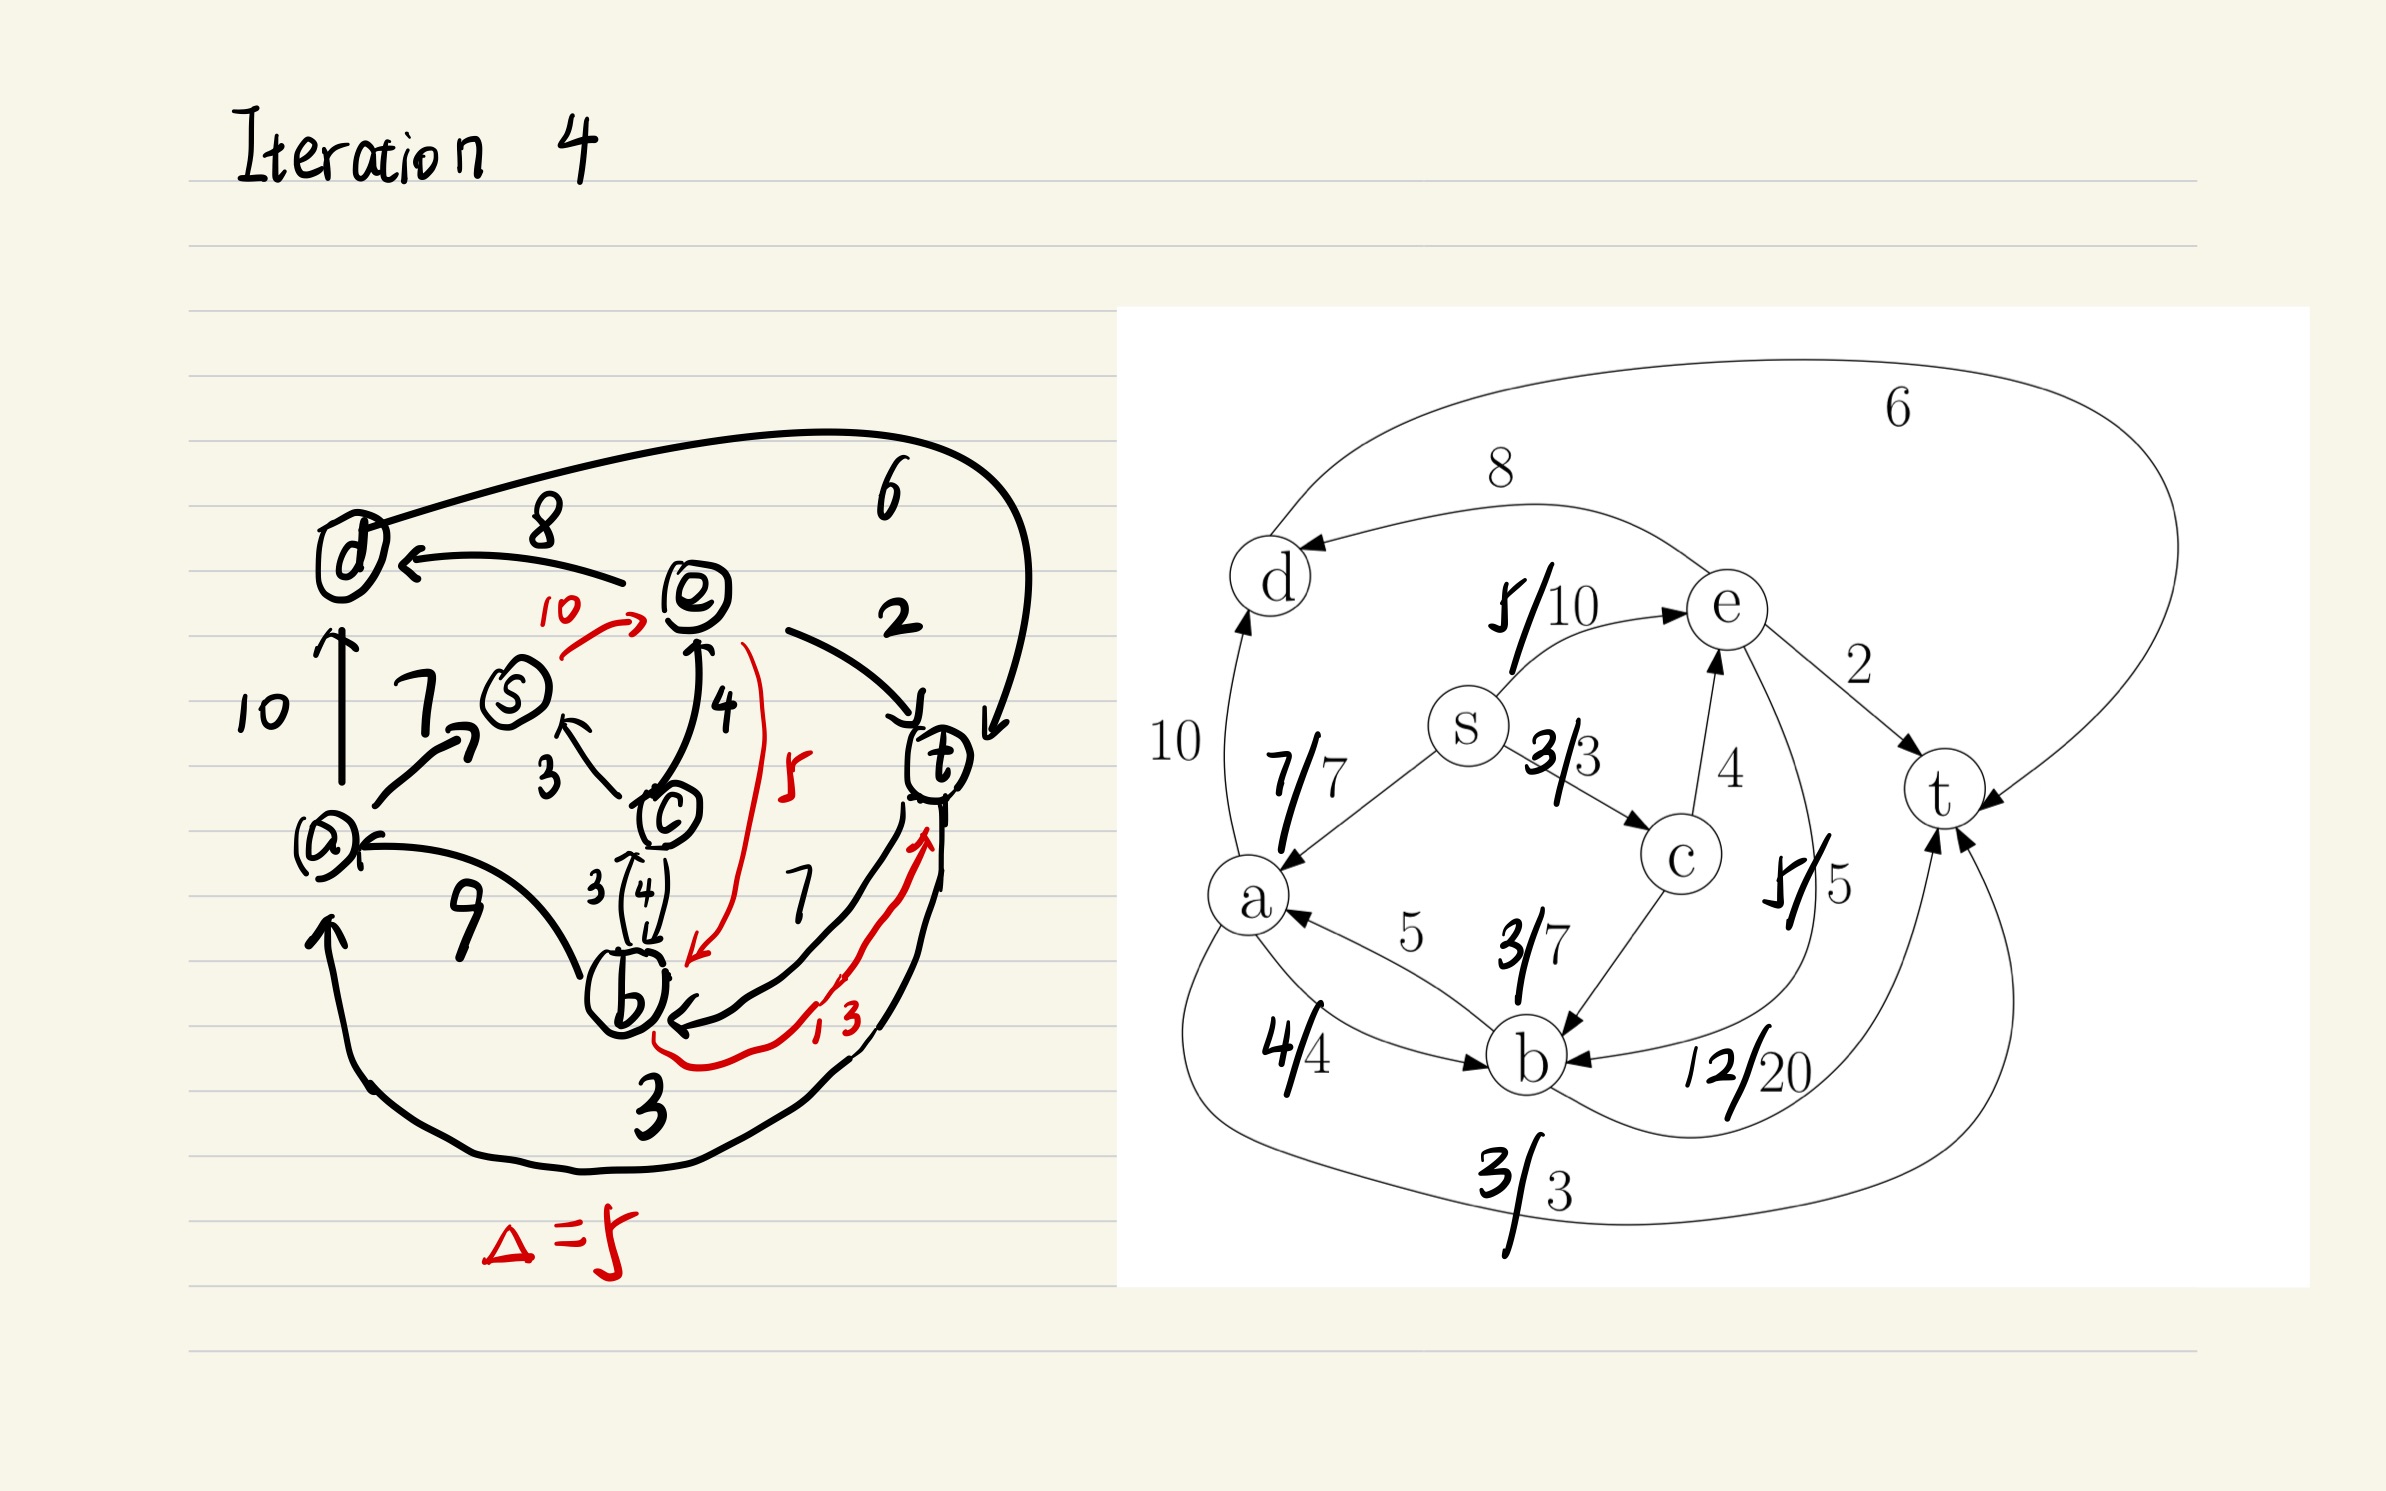 Iteration 4
6
8
d
e
10
2
10
7
s
4
t
3
5
a
c
3
4
7
9
b
13
3
Δ = 5
6
8
d
e
5/10
2
s
10
7/7
3/3
4
t
c
5/5
a
5
3/7
4/4
b
12/20
3/3